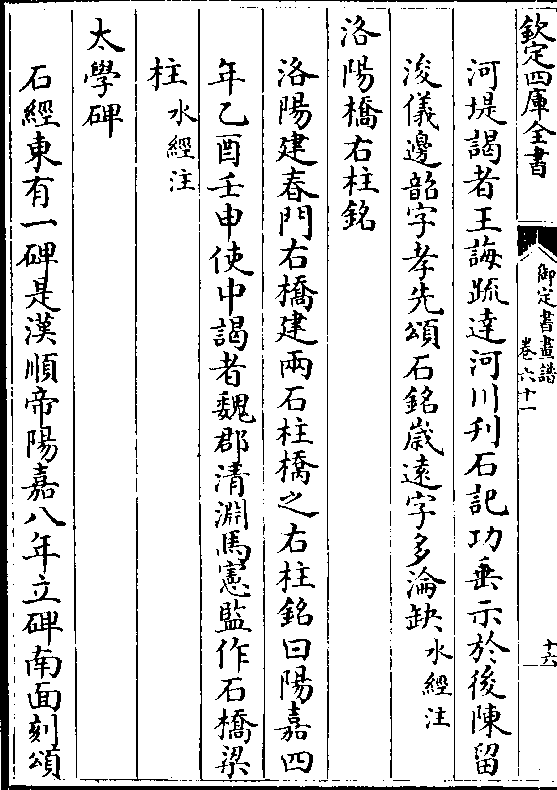 欽定四庫全書
御定書畫譜
卷六十一
十六
河堤謁者王誨疏達河川刋石記功垂示於後陳留
浚儀邊韶字孝先頌石銘嵗遠字多淪缺水經注
洛陽橋右柱銘
洛陽建春門右橋建兩石柱橋之右柱銘曰陽嘉四
年乙酉壬申使中謁者魏郡清淵馬憲監作石橋梁
柱水經注
太學碑
石經東有一碑是漢順帝陽嘉八年立碑南面刻頌